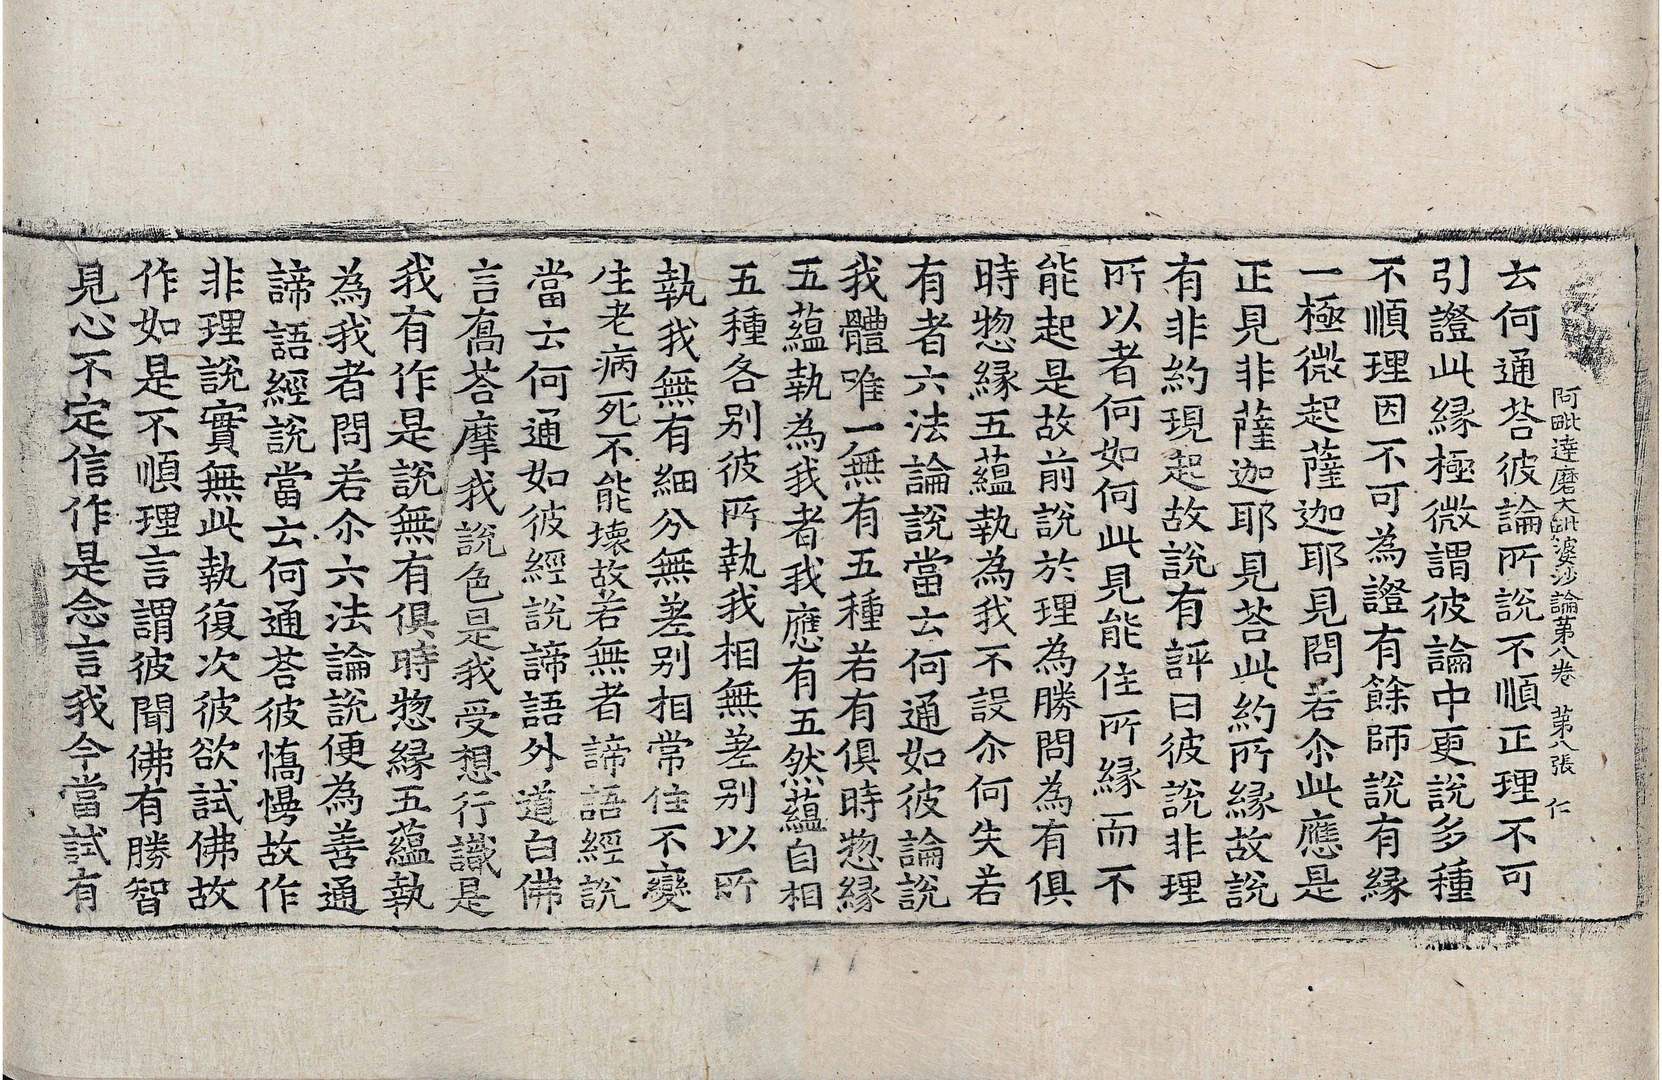 阿毗達磨大毗婆沙論第八卷 第八張 仁
去何通荅彼論所說不順正理不可
引證此緣極微謂彼論中更說多種
不順理因不可為證有餘師說有緣
一極微起薩迦耶見問若尒此應是
正見非薩迦耶見荅此約所緣故說
有非約現起故說有評曰彼說非理
所以者何如何此見能住所緣而不
能起是故前說於理為勝問為有俱
時惣緣五蘊執為我不設尒何失若
有者六法論說當云何通如彼論說
我體唯一無有五種若有俱時惣緣
五蘊執為我者我應有五然蘊自相
五種各別彼所執我相無差別以所
執我無有細分無差別相常住不變
生老病死不能壞故若無者諦語經說
當云何通如彼經說諦語外道白佛
言喬荅摩我說色是我受想行識是
我有作是說無有俱時惣緣五蘊執
為我者問若尒六法論說便為善通
諦語經說當云何通荅彼憍慢故作
非理說實無此執復次彼欲試佛故
作如是不順理言謂彼聞佛有勝智
見心不定信作是念言我今當試有